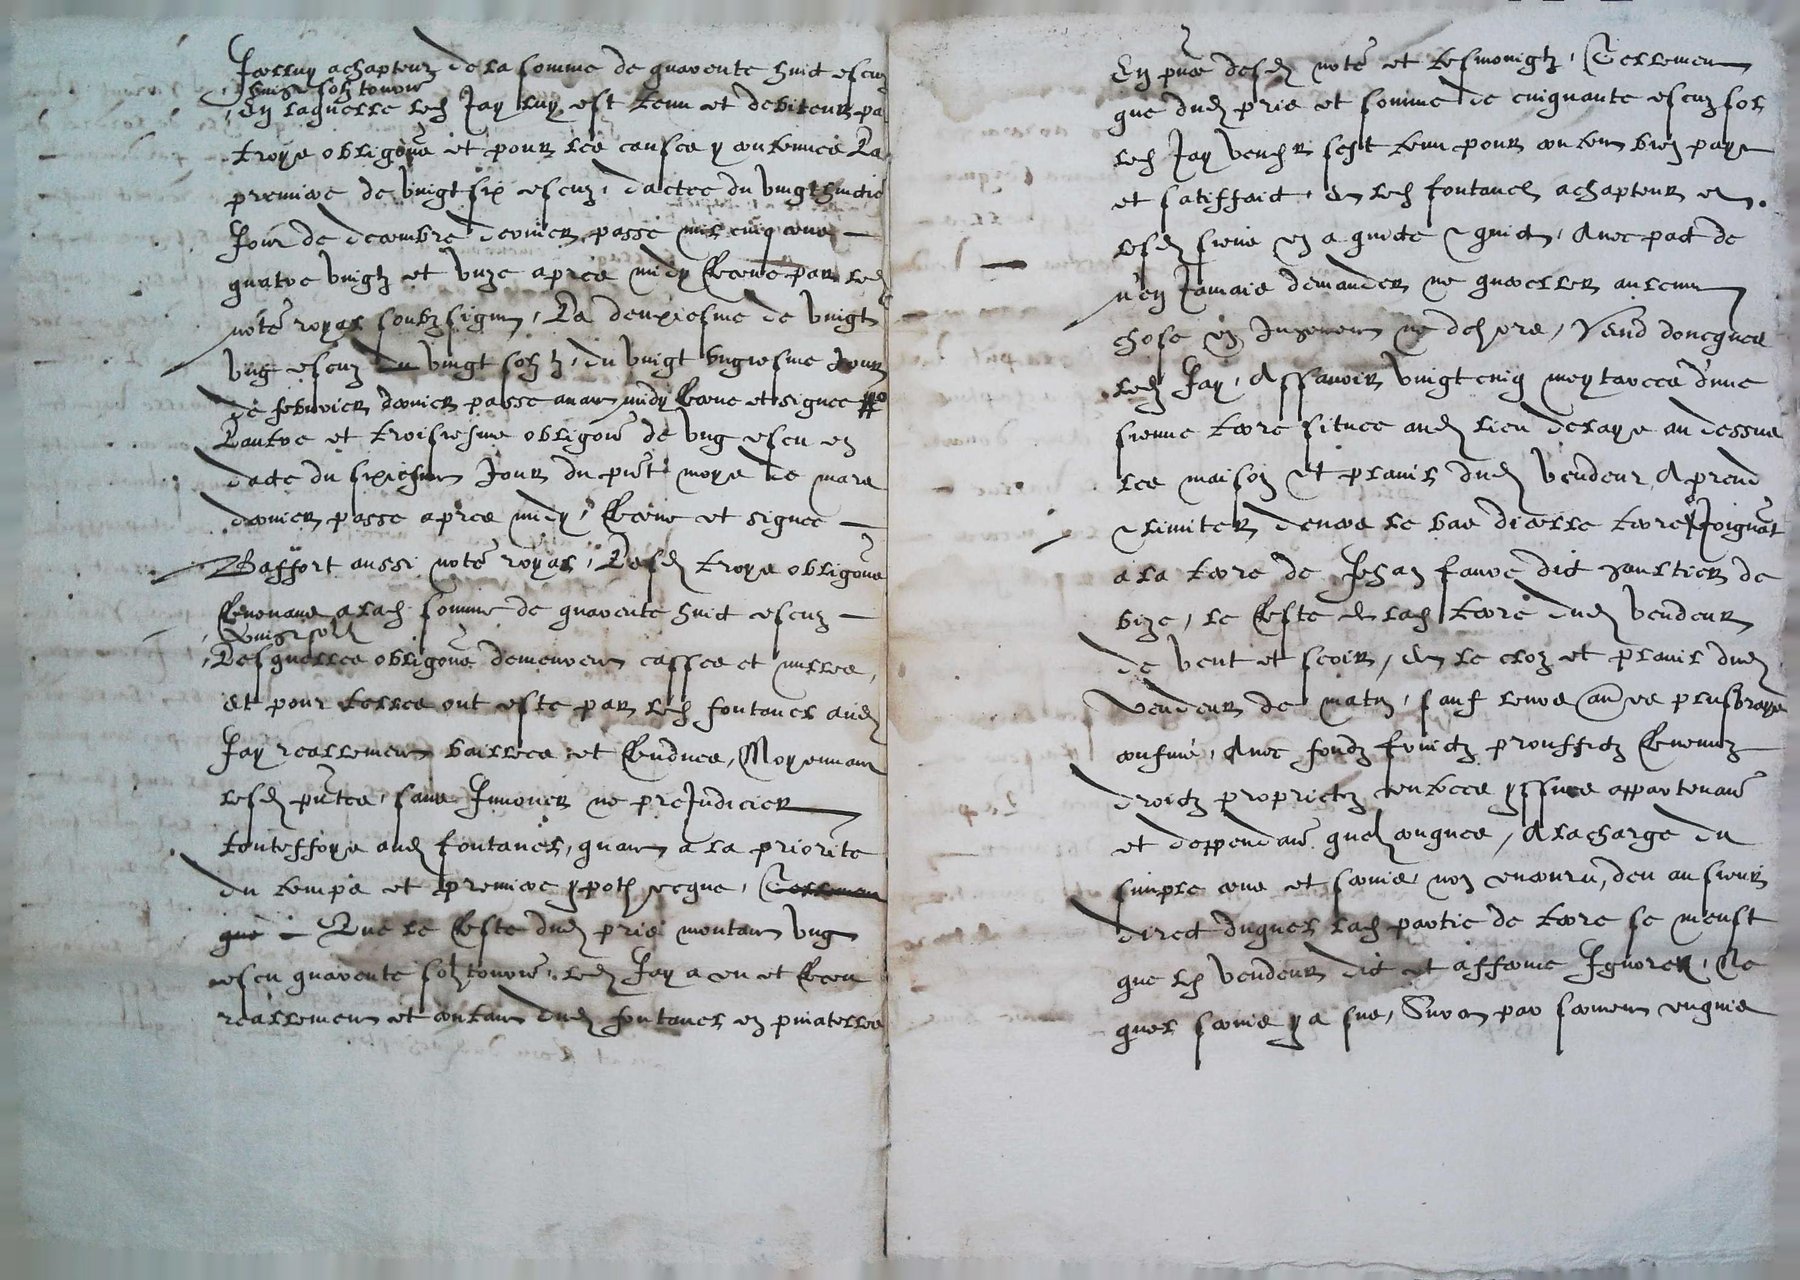 Icelluy achapteur de la somme de quarente huict escuz
vingt solz tournois
En laquelle led Jay luy est tenu et debiteur pa
troys obligons et pour les causes y contenues La
premiere de vingt six escuz, dactee du vingt huictie
Jour de decembre dernier passe mil cinq cens
quatre vingtz et unze apres midy Receue par led
notre royal soubzsigne, La deuxiesme de vingt
ung escuz vingt solz tz, du vingt ungiesme Jour
de febvrier dernier passe avant midy Receue et signee
Lautre et troisiesme obligon de ung escu en
dacte du sixiesme Jour du pnt moys de mars
dernier passe apres midy, Receue et signee
Baffort aussi notre royal, Lesd troys obligons
Revenans a lad somme de quarente huict escuz
vingt solz
Desquelles obligons demeurent casses et nulles,
Et pour telles ont este par led fontanel aud
Jay reallement baillees et Rendues, Moyennant
lesd pntes, sans Innover ne preJudicier
touteffoys aud fontanel, quant a la priorite
du temps et premiere ypothecque, Tellement
que Que le Reste dud pris montant ung
escu quarente solz tournois, led Jay a eu et Receu
reallement et contant dud fontanel en pinatelles
En pnce desd notre et tesmoingtz, Tellement
que dud pris et somme de cinquante escuz sol
led Jay vendr sest tenu pour content bien paye
et satiffaict, Et led fontanel achapteur et
lesd siens en a quicte & quicte, Avec pact de
nen Jamais demander ne quereller aulcune
chose en Jugement ne dehors, Vend doncques
led Jay, Assavoir vingt cinq meytarees dune
sienne terre situee aud lieu de laye au dessus
les maison et plassis dud vendeur, A prend
& limiter devers le bas dicelle terre Joignant
a la terre de Jehan faure dit gaultier de
bize, le Reste de lad terre dud vendeur
de vent et seoir, Et le cloz et plassis dud
vendeur de matin, sauf leurs aultres plus vrays
confins, Avec fondz fruictz prouffictz Revenuz
droictz proprietez entrees yssues appartenans
et deppendans quelzconques, A la charge du
simple cens et servis, non encouru, deu au sieur
direct duquel lad partie de terre se meust
que led vendeur dit et afferme Ignorer, Ne
quel servis y a sus, Suron par serment enquis